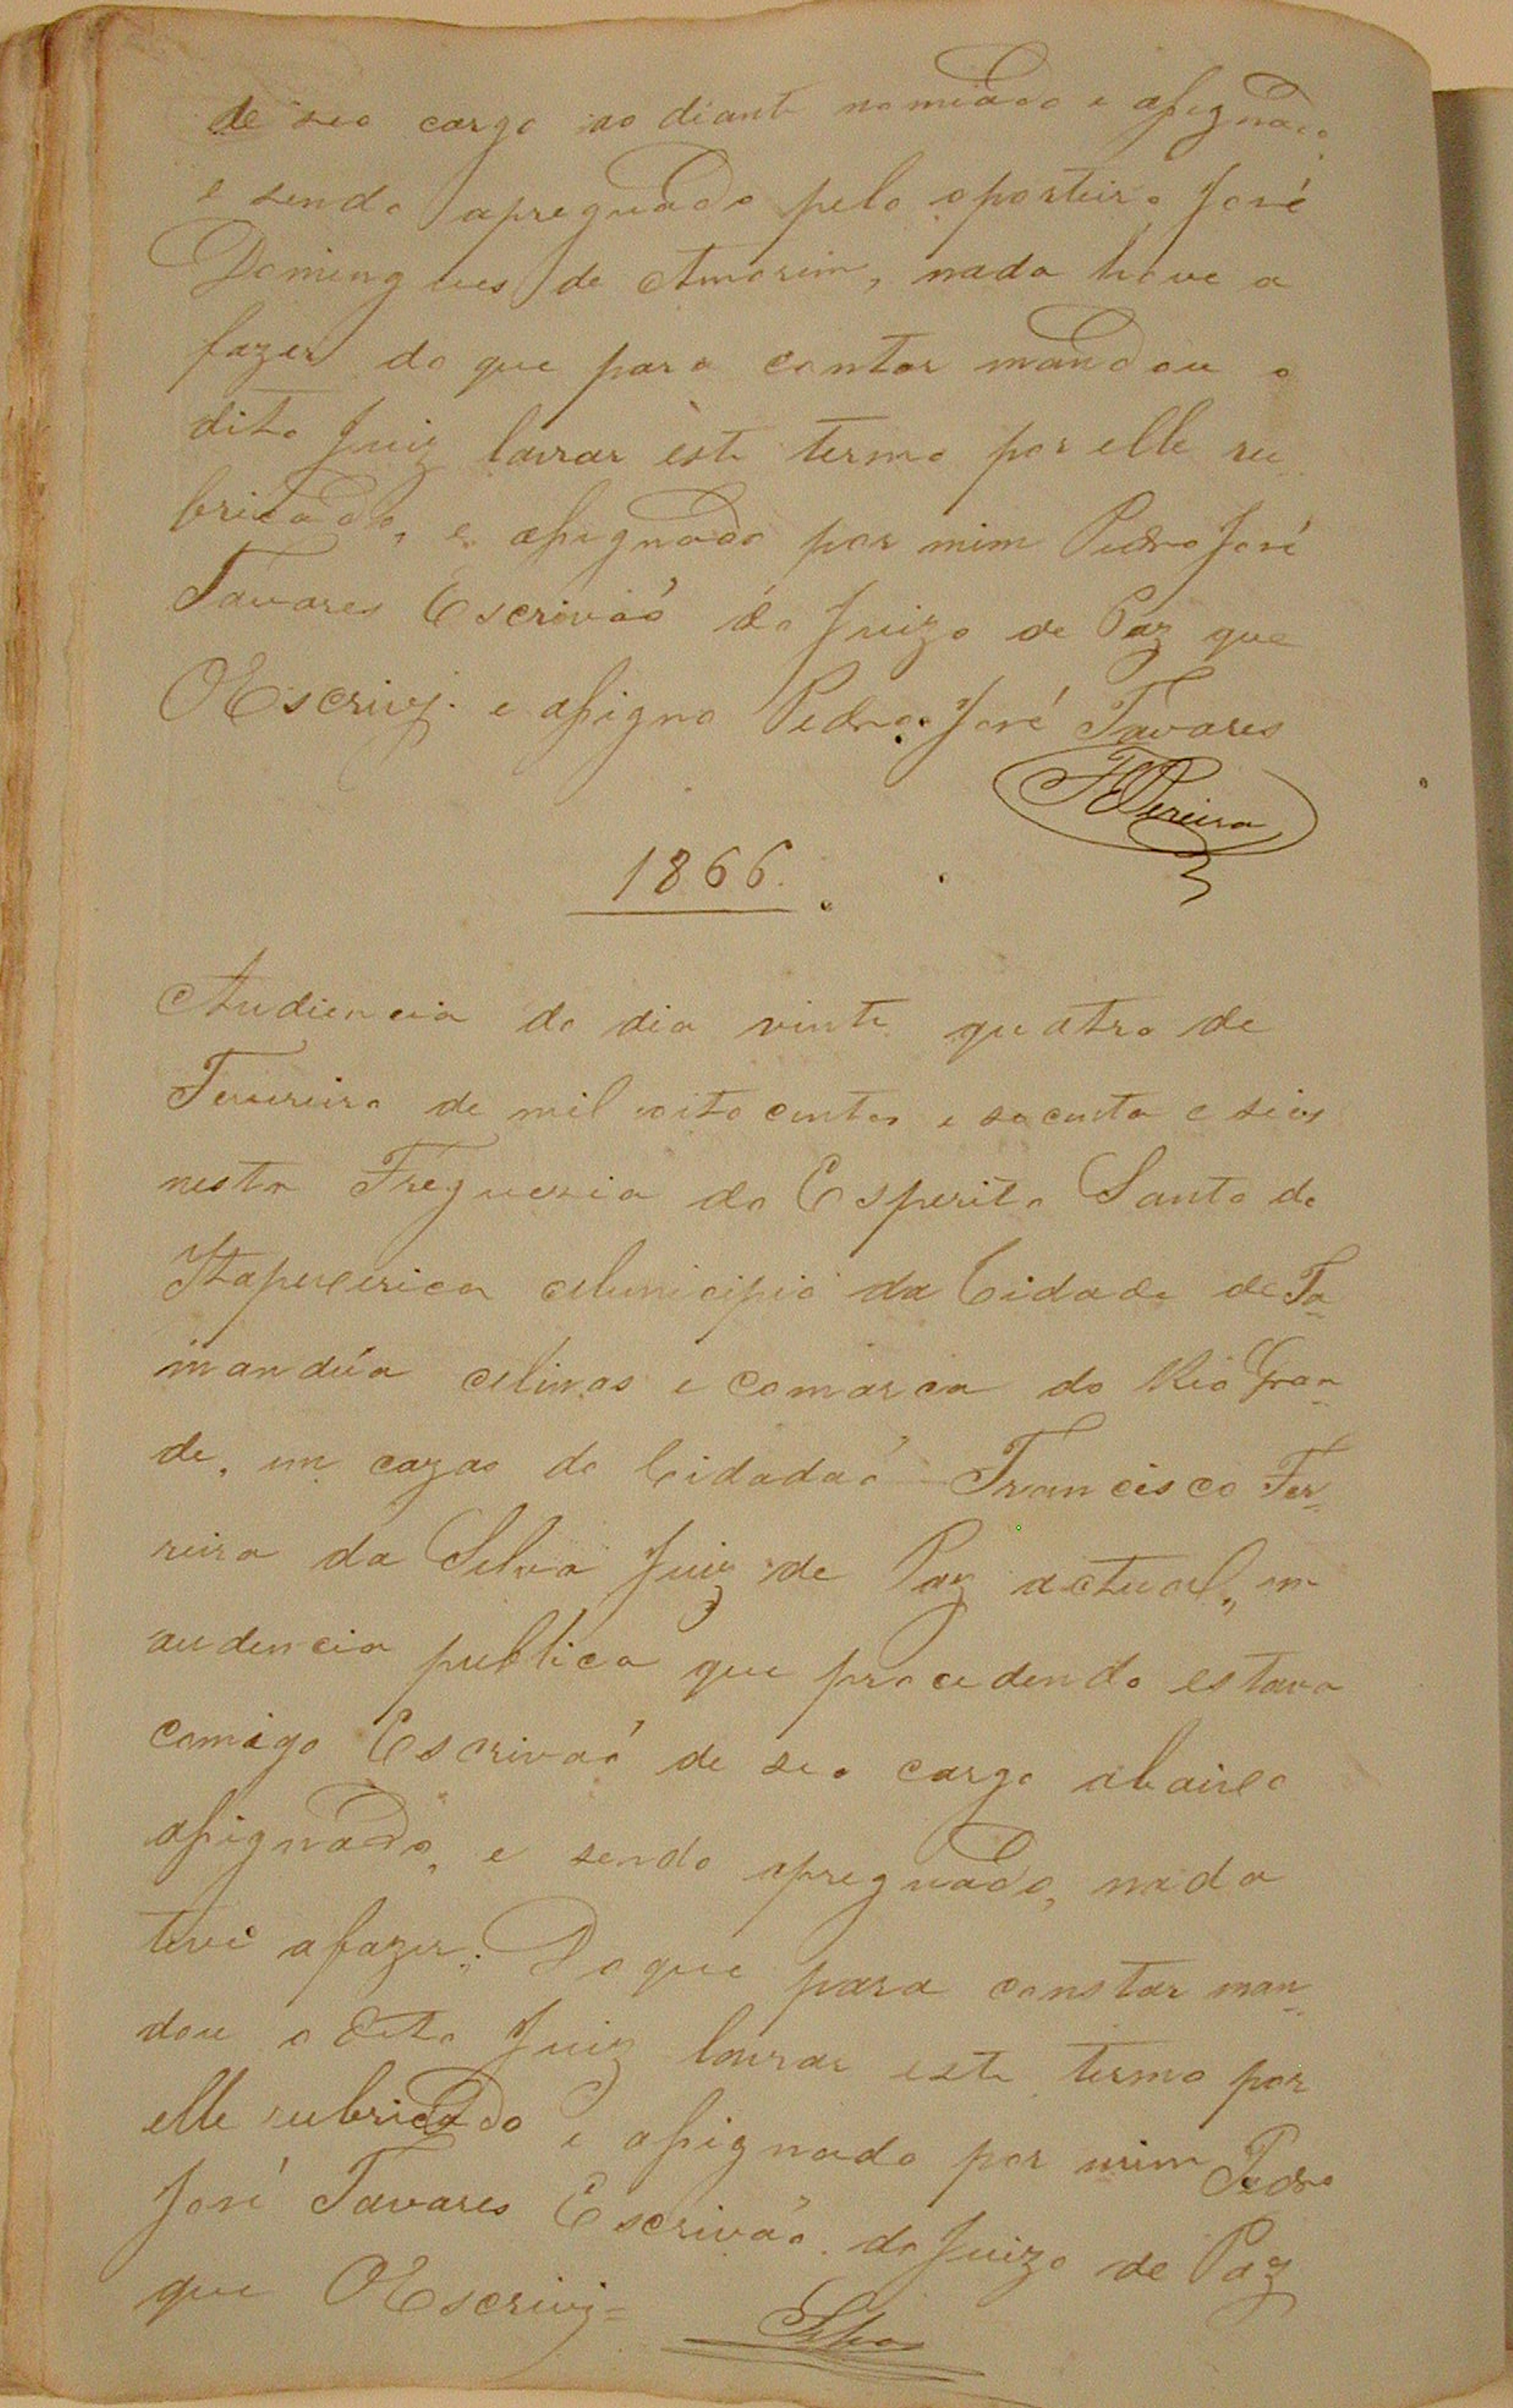 de seo cargo ao diante nomiado e assignado
e sendo apreguado pelo oporteiro José
Domingues de Amorim, nada houve a
fazer do que para contar mandou o
dito Juiz lavrar este termo por elle ru
bricado, e assignado por mim Pedro José
Tavares Escrivaõ do Juizo de Paz que
OEscrivj. e assigno Pedro José Tavares
FPereira
1866.
Audiencia do dia vinte quatro de
Fevereiro de mil oito centos e secenta e seis
nesta Freguezia do Esperito Santo de
Itapecerica Municipio da Cidade de Ta=
mandúa Minas e Comarca do Rio Gran=
de, em cazas do Cidadaõ Francisco Fer=
reira da Silva Juiz de Paz actual, em
audencia publica que procedendo estava
comigo Escrivaõ de seo cargo abaixo
assignado, e sendo apreguado, nada
teve afazer. Do que para constar man=
dou o dito Juiz lavrar este termo por
elle rubricado e assignado por mim Pedro
José Tavares Escrivão do Juizo de Paz
que OEscrivj=
Silva